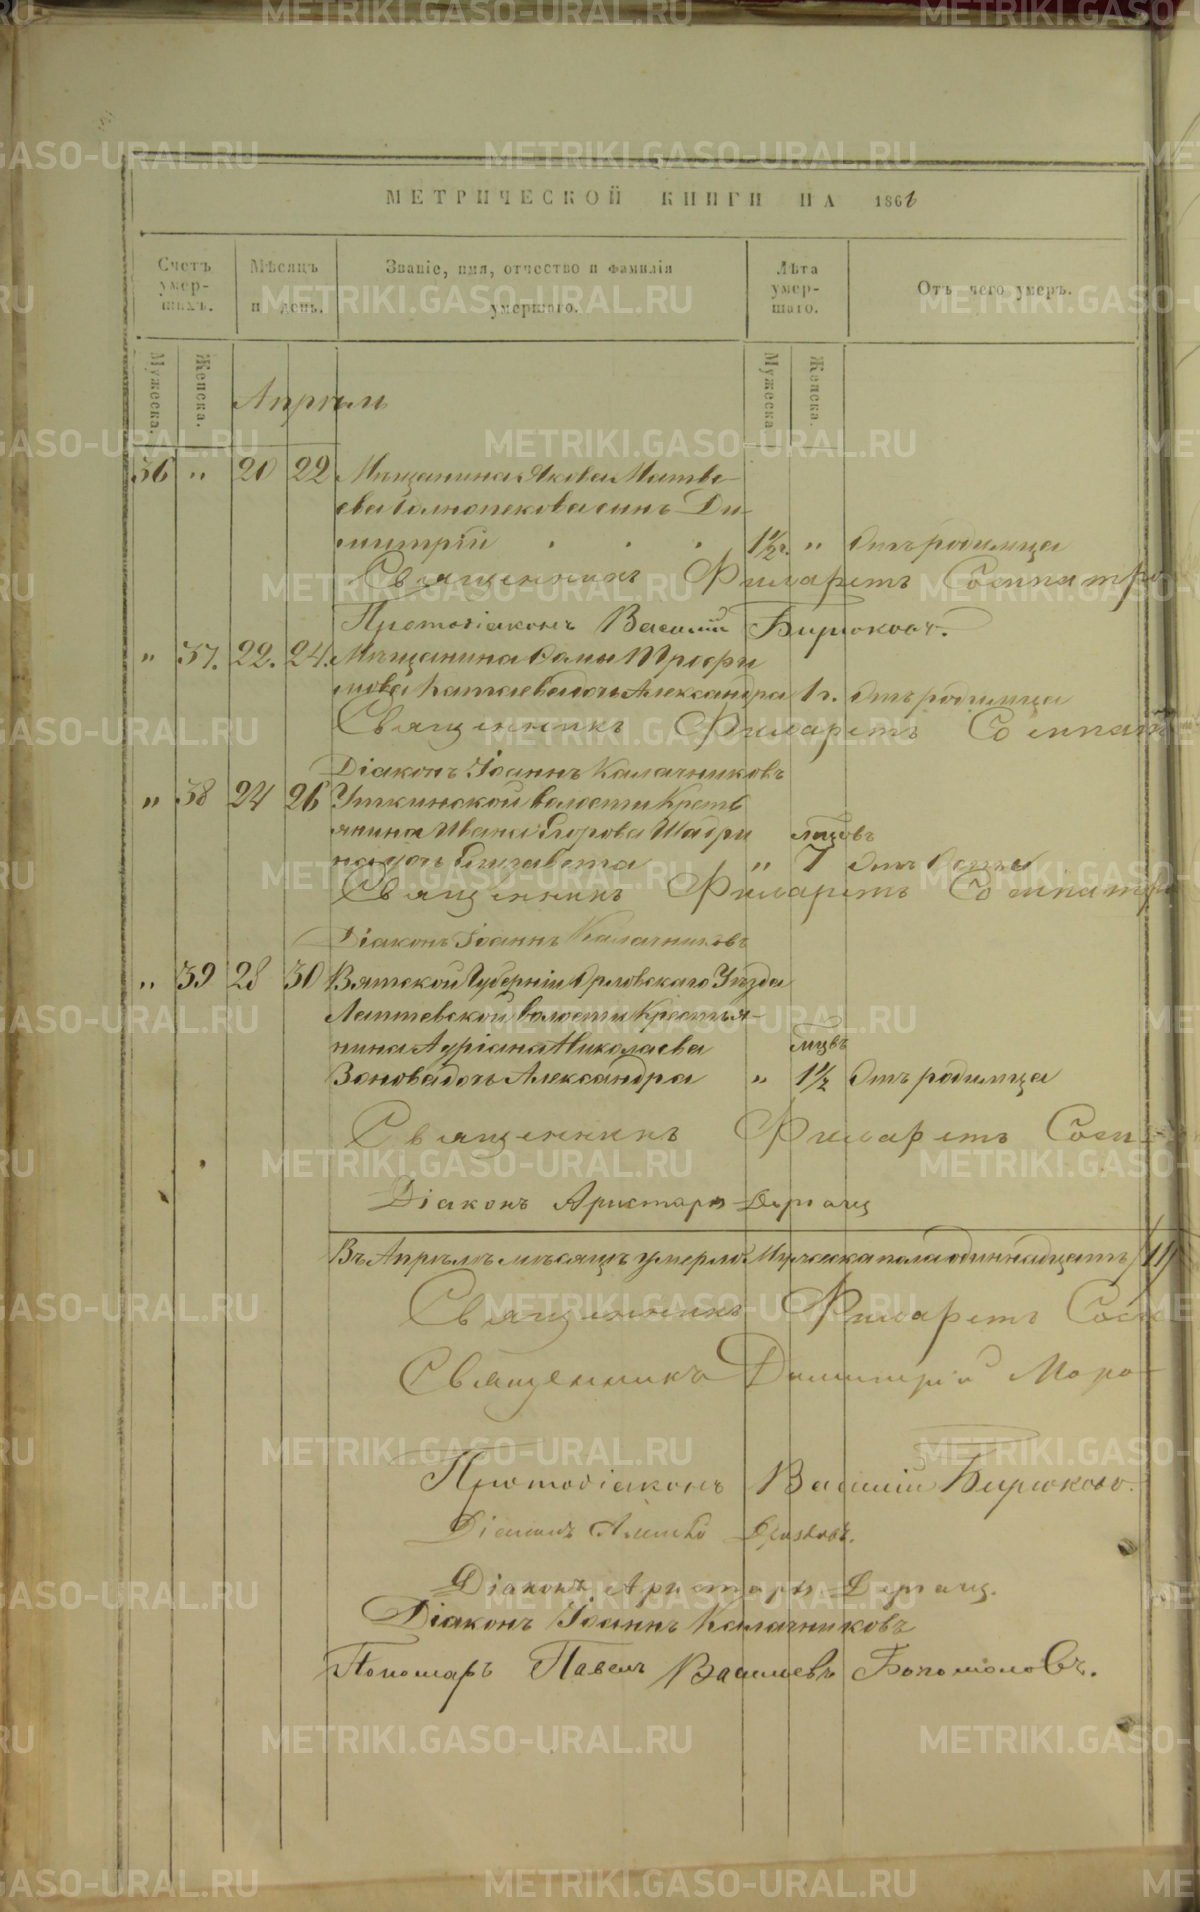 МЕТРИЧЕСКОЙ КНИГИ НА 186
Счетъ умер-шихъ.
Мѣсяцъ и день.
Званіе, имя, отчество и фамилія умершаго.
Лѣта умер-шаго.
Отъ чего умеръ.
Мужеска. Женска. Мужеска Женска.
Апрѣль
36 " 20 22 Мѣщанина Якова Матвѣ-
ева сынъ Ди
митрій . . . 1½ г. " Отъ родимца
Священникъ Филаретъ Сосипатро
Протодіаконъ Василій Бирюковъ.
" 37. 22. 24. Мѣщанина Ѳомы Трофи
мова дочь Александра 1 г. Отъ родимца
Священникъ Филаретъ Сосипат
Діаконъ Іоаннъ Калачниковъ
" 38 24 26 Уткинской волости Кресть
янина Ивана Егорова Шадри
на дочь Елизавета " 7 мцовъ Отъ Оспы
Священникъ Филаретъ Сосипатро
Діаконъ Іоаннъ Калачниковъ
" 39 28 30 Вятской Губерніи Орловскаго Уѣзда
волости Крестья-
нина Адріана Николаева
дочь Александра " 1½ мцвъ Отъ родимца
Священникъ Филаретъ Соси
Діаконъ Аристархъ
Въ Апрѣлѣ мѣсяцѣ умерло Мужеска пола одиннадцать /11/
Священникъ Филаретъ Соси
Священникъ Димитрій Моро
Протодіаконъ Василій Бирюковъ.
Діаконъ
Діаконъ Аристархъ
Діаконъ Іоаннъ Калачниковъ
Пономарь Павелъ Васильевъ Богомоловъ.
METRIKI.GASO-URAL.RU